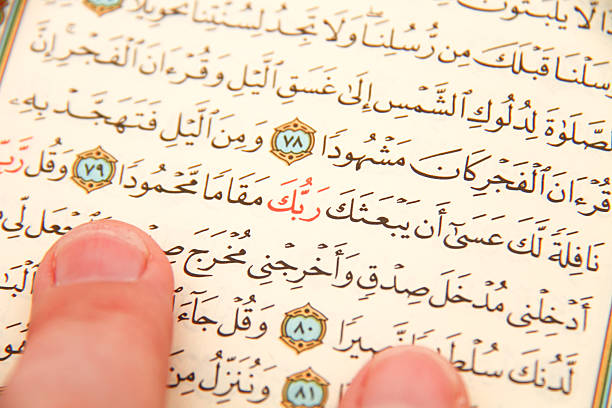 ذًا لَّا يَلْبَثُونَ
سَلْنَا قَبْلَكَ مِن رُّسُلِنَا وَلَا تَجِدُ لِسُنَّتِنَا تَحْوِيلًا
ٱلصَّلَوٰةَ لِدُلُوكِ ٱلشَّمْسِ إِلَىٰ غَسَقِ ٱلَّيْلِ وَقُرْءَانَ ٱلْفَجْرِ إِنَّ
قُرْءَانَ ٱلْفَجْرِ كَانَ مَشْهُودًا ٧٨ وَمِنَ ٱلَّيْلِ فَتَهَجَّدْ بِهِۦ
نَافِلَةً لَّكَ عَسَىٰٓ أَن يَبْعَثَكَ رَبُّكَ مَقَامًا مَّحْمُودًا ٧٩ وَقُل رَّبِّ
أَدْخِلْنِى مُدْخَلَ صِدْقٍ وَأَخْرِجْنِى مُخْرَجَ جْعَل لِّى
لَّدُنكَ سُلْطَٰنًا نَّصِيرًا ٨٠ وَقُلْ جَآءَ
٨١ وَنُنَزِّلُ مِنَ